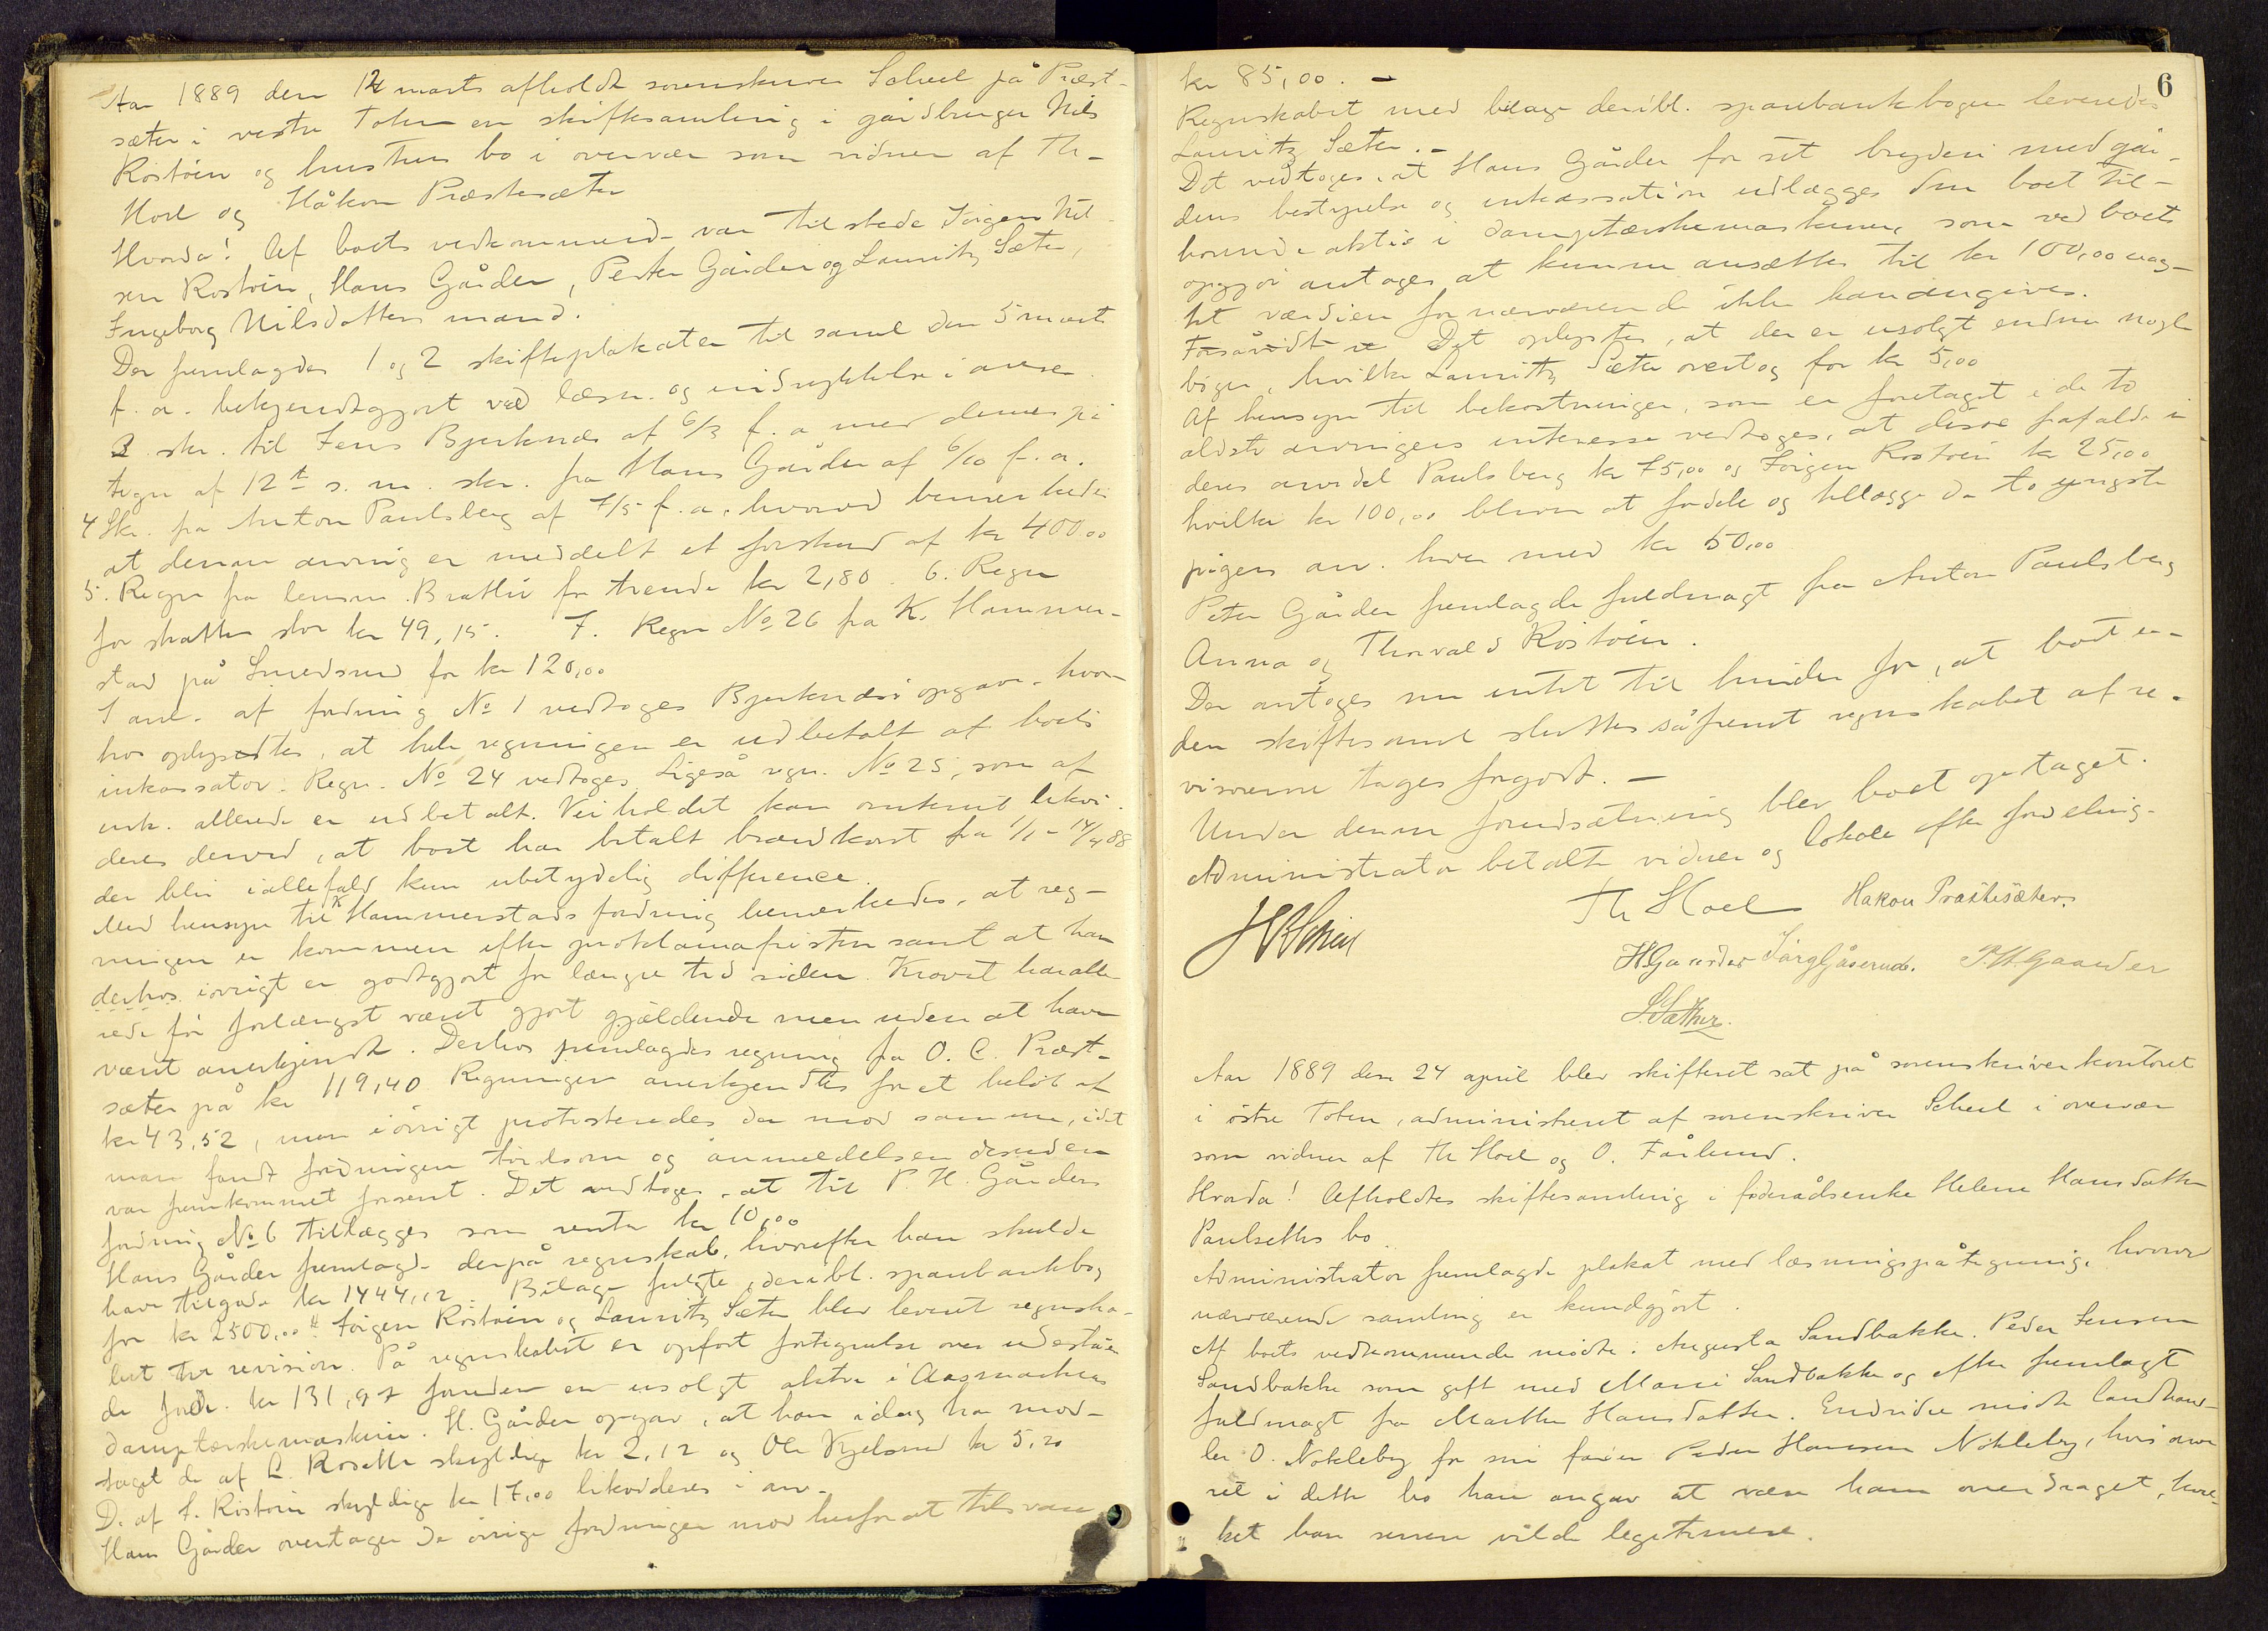 Aar 1889 den 12 marts afholdt sorenskriver Scheel på Præst-
sæter i vestre Toten en skiftesamling i gårdbruger Nils
Röstöien og hustrues bo i overvær som vidner af Th.
Hoel og Håkon Præstesæter
Hvorda! Af boets vedkommende var tilstede Jörgen Nil-
sen Röstöien, Hans Gårder, Peter Gårder og Lauritz Sæter,
Ingeborg Nilsdatters mand.
Der fremlagdes 1 og 2 skifteplakater til saml. den 5 marts
f. a. bekjendtgjort ved læsn. og indrykkelse i aviser
3 skr. til Jens Bjerknæs af 6/3 f. a. med dennes på-
tegn af 12te s. m. skr. fra Hans Gårder af 6/10 f. a.
4 Skr. fra Anton Paulsberg af 7/5 f. a., hvorved bemærkedes
at denne arving er meddelt et forskud af kr 400,00
5. Regn fra lensm. Brattli for trende kr 2,80. 6. Regn
for skatter stor kr 49,15. 7. Regn No 26 fra K. Hammer-
stad på Smedsrud for kr 120,00
I anl. af fordring No 1 vedtoges Bjerknæs's opgave, hvor-
hos oplystes, at hele regningen er udbetalt af boets
inkassator. Regn. No 24 vedtoges Ligeså regn. No 25, som af
ink. allerede er udbetalt. Veiholdet kan omtrent likvi-
deres derved, at boet har betalt brandkont. fra 1/1 - 14/4 88
der blir iallefald kun ubetydelig difference.
Med hensyn til K Hammerstads fordring bemærkedes, at reg-
ningen er kommen efter proklamafristen samt at han
derhos iövrigt er godtgjort for længre tid siden. Kravet har alle-
rede för forlængst været gjort gjældende men uden at have
været anerkjendt. Derhos fremlagdes regning fra O. C. Præst-
sæter på kr 119,40 Regningen anerkjendtes for et belöb af
kr 43,52, men iövrigt protesteredes der mod samme, idet
man fandt fordringen tvilsom og anmeldelsen desuden
var fremkommet forsent. Det vedtoges, at til P. H. Gårders
fordring No 6 tillægges som rente kr 10,00
Hans Gårder fremlagde derpå regnskab, hvorefter han skulde
have tilgode kr 1444,12. Bilage fulgte, deribl. sparebankbog
for kr 2500,00. Jörgen Röstöien og Lauritz Sæter blev leveret regnska-
bet til revision. På regnskabet er opfört fortegnelse over udeståen-
de fordr. kr 131,97 foruden en usolgt aktie i Aasmarkens
damptærskemaskine. H. Gårder opgav, at han idag har mod-
taget de af L. Rosette skyldige kr 2,12 og Ole Kjelsrud kr 5,20
De af J. Röstöien skyldige kr 17,00 likvideres i arv.
Hans Gårder overtager de övrige fordringer mod herfor at tilsvare
6
kr 85,00. -
Regnskabet med bilage deribl. sparebankbogen leveredes
Lauritz Sæter. -
Det vedtoges, at Hans Gårder for sit bryderi med går-
dens bestyrelse og inkassation udlægges den boet til-
hörende aktie i damptærskemaskinen, som ved boets
opgjör antages at kunne ansættes til kr 100,00 uag-
tet værdien for nærværende ikke kan angives.
Forsåvidt Det oplystes, at der er usolgt endnu nogle
böger, hvilke Lauritz Sæter overtog for kr 5,00
Af hensyn til bekostninger, som er foretaget i de to
ældste arvingers interesse vedtoges, at disse frafalder i
deres arvedel Paulsberg kr 75,00 og Jörgen Röstöien kr 25,00
hvilke kr 100,00 bliver at fordele og tillægge de to yngste
pigers arv. hver med kr 50,00
Peter Gårder fremlagde fuldmagt fra Anton Paulsberg
Anna og Thorvald Röstöien.
Der antoges nu intet til hinder for, at boet en-
den skiftesaml. sluttes såfremt regnskabet af re-
visorerne tages forgodt. -
Under denne forudsætning blev boet optaget.
Administrator betalte vidner og lokale efter fordeling.
Th Hoel Hakon Præstesæter.
HGaarder P.H. Gaarder
L. Sæther.
Aar 1889 den 24 april blev skifteret sat på sorenskriverkontoret
i östre Toten, administreret af sorenskriver Scheel i overvær
som vidner af Th Hoel og O. Fårlund.
Hvorda! Afholdtes skiftesamling i föderådsenke Helene Hansdatter
Paulsettes bo
Administrator fremlagde plakat med læsningspåtegning, hvorved
nærværende samling er kundgjort.
Af boets vedkommende mödte: Augusta Sandbakke. Peder Jensen
Sandbakke som gift med Marie Sandbakke og efter fremlagt
fuldmagt fra Marthe Hansdatter. Endvidere mödte landhand-
ler O. Nökleby for sin far Peder Hansen Nökleby, hvis arve-
ret i dette bo han angav at være ham overdraget, hvil-
ket han senere vilde legitimere.